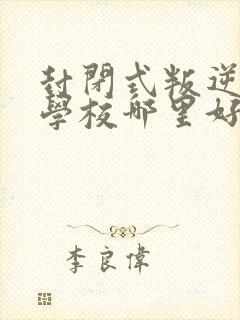 封閉式叛逆
學校哪里好
李良偉